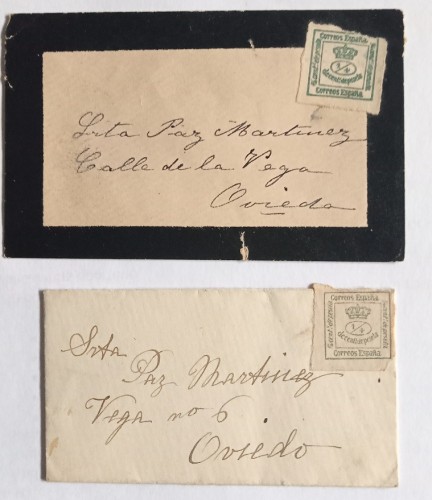 Correos España
1/4
de cent de peseta
Correos España
Srta Paz Martinez
Calle de la Vega
Oviedo
Correos España
1/4
de cent de peseta
Correos España
Srta
Paz Martinez
Vega no 6
Oviedo